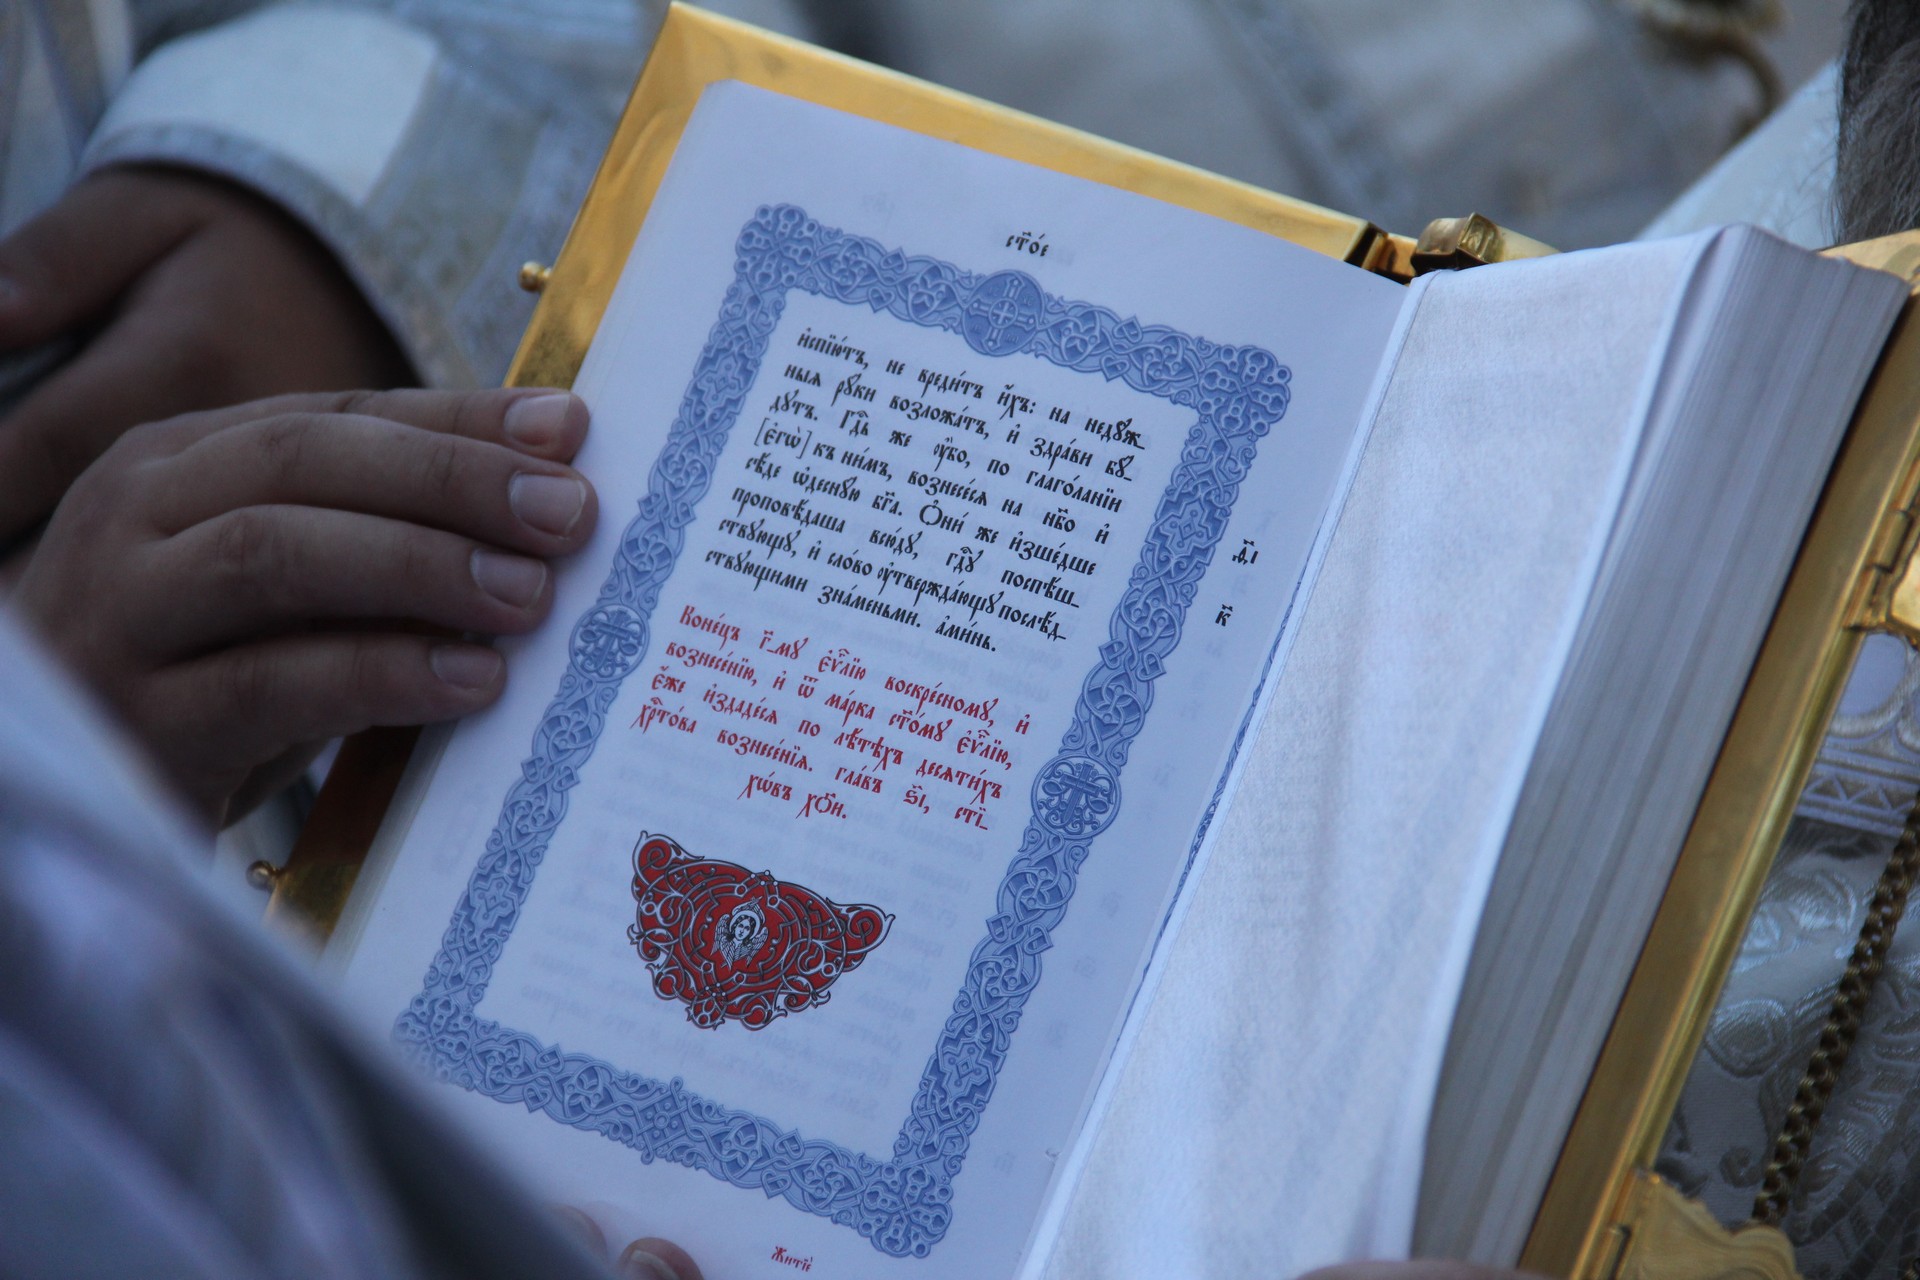 ст҃о́е
и҆спїю́тъ, не вреди́тъ и҆́хъ: на недꙋ́ж_
ныѧ рꙋ́ки возложа́тъ, и҆ здра́ви бꙋ́_
дꙋтъ. Гдⷭ҇ь же ᲂу҆́бо, по глаго́ланїи
[є҆гѡ̀] къ ни̑мъ, вознесе́сѧ на нб҃о и҆
сѣ́де ѡ҆деснꙋ́ю бг҃а. Ѻ҆ни́ же и҆зше́дше
проповѣ́даша всю́дꙋ, гдⷭ҇ꙋ поспѣ́ш_
ствꙋющꙋ, и҆ сло́во ᲂу҆твержда́ющꙋ послѣ́д_
ствꙋющими зна́меньми. а҆ми́нь.
д҃і
к҃
Коне́цъ г҃_мꙋ є҆ѵⷢ҇лїю воскре́сномꙋ, и҆
вознесе́нїю, и҆ ѿ ма́рка ст҃о́мꙋ є҆ѵⷢ҇лїю,
є҆́же и҆здаде́сѧ по лѣ́тѣхъ десѧти́хъ
хрⷭ҇то́ва вознесе́нїѧ. гла́въ ѕ҃і, сті_
хѡ́въ хо҃и.
Житїѐ